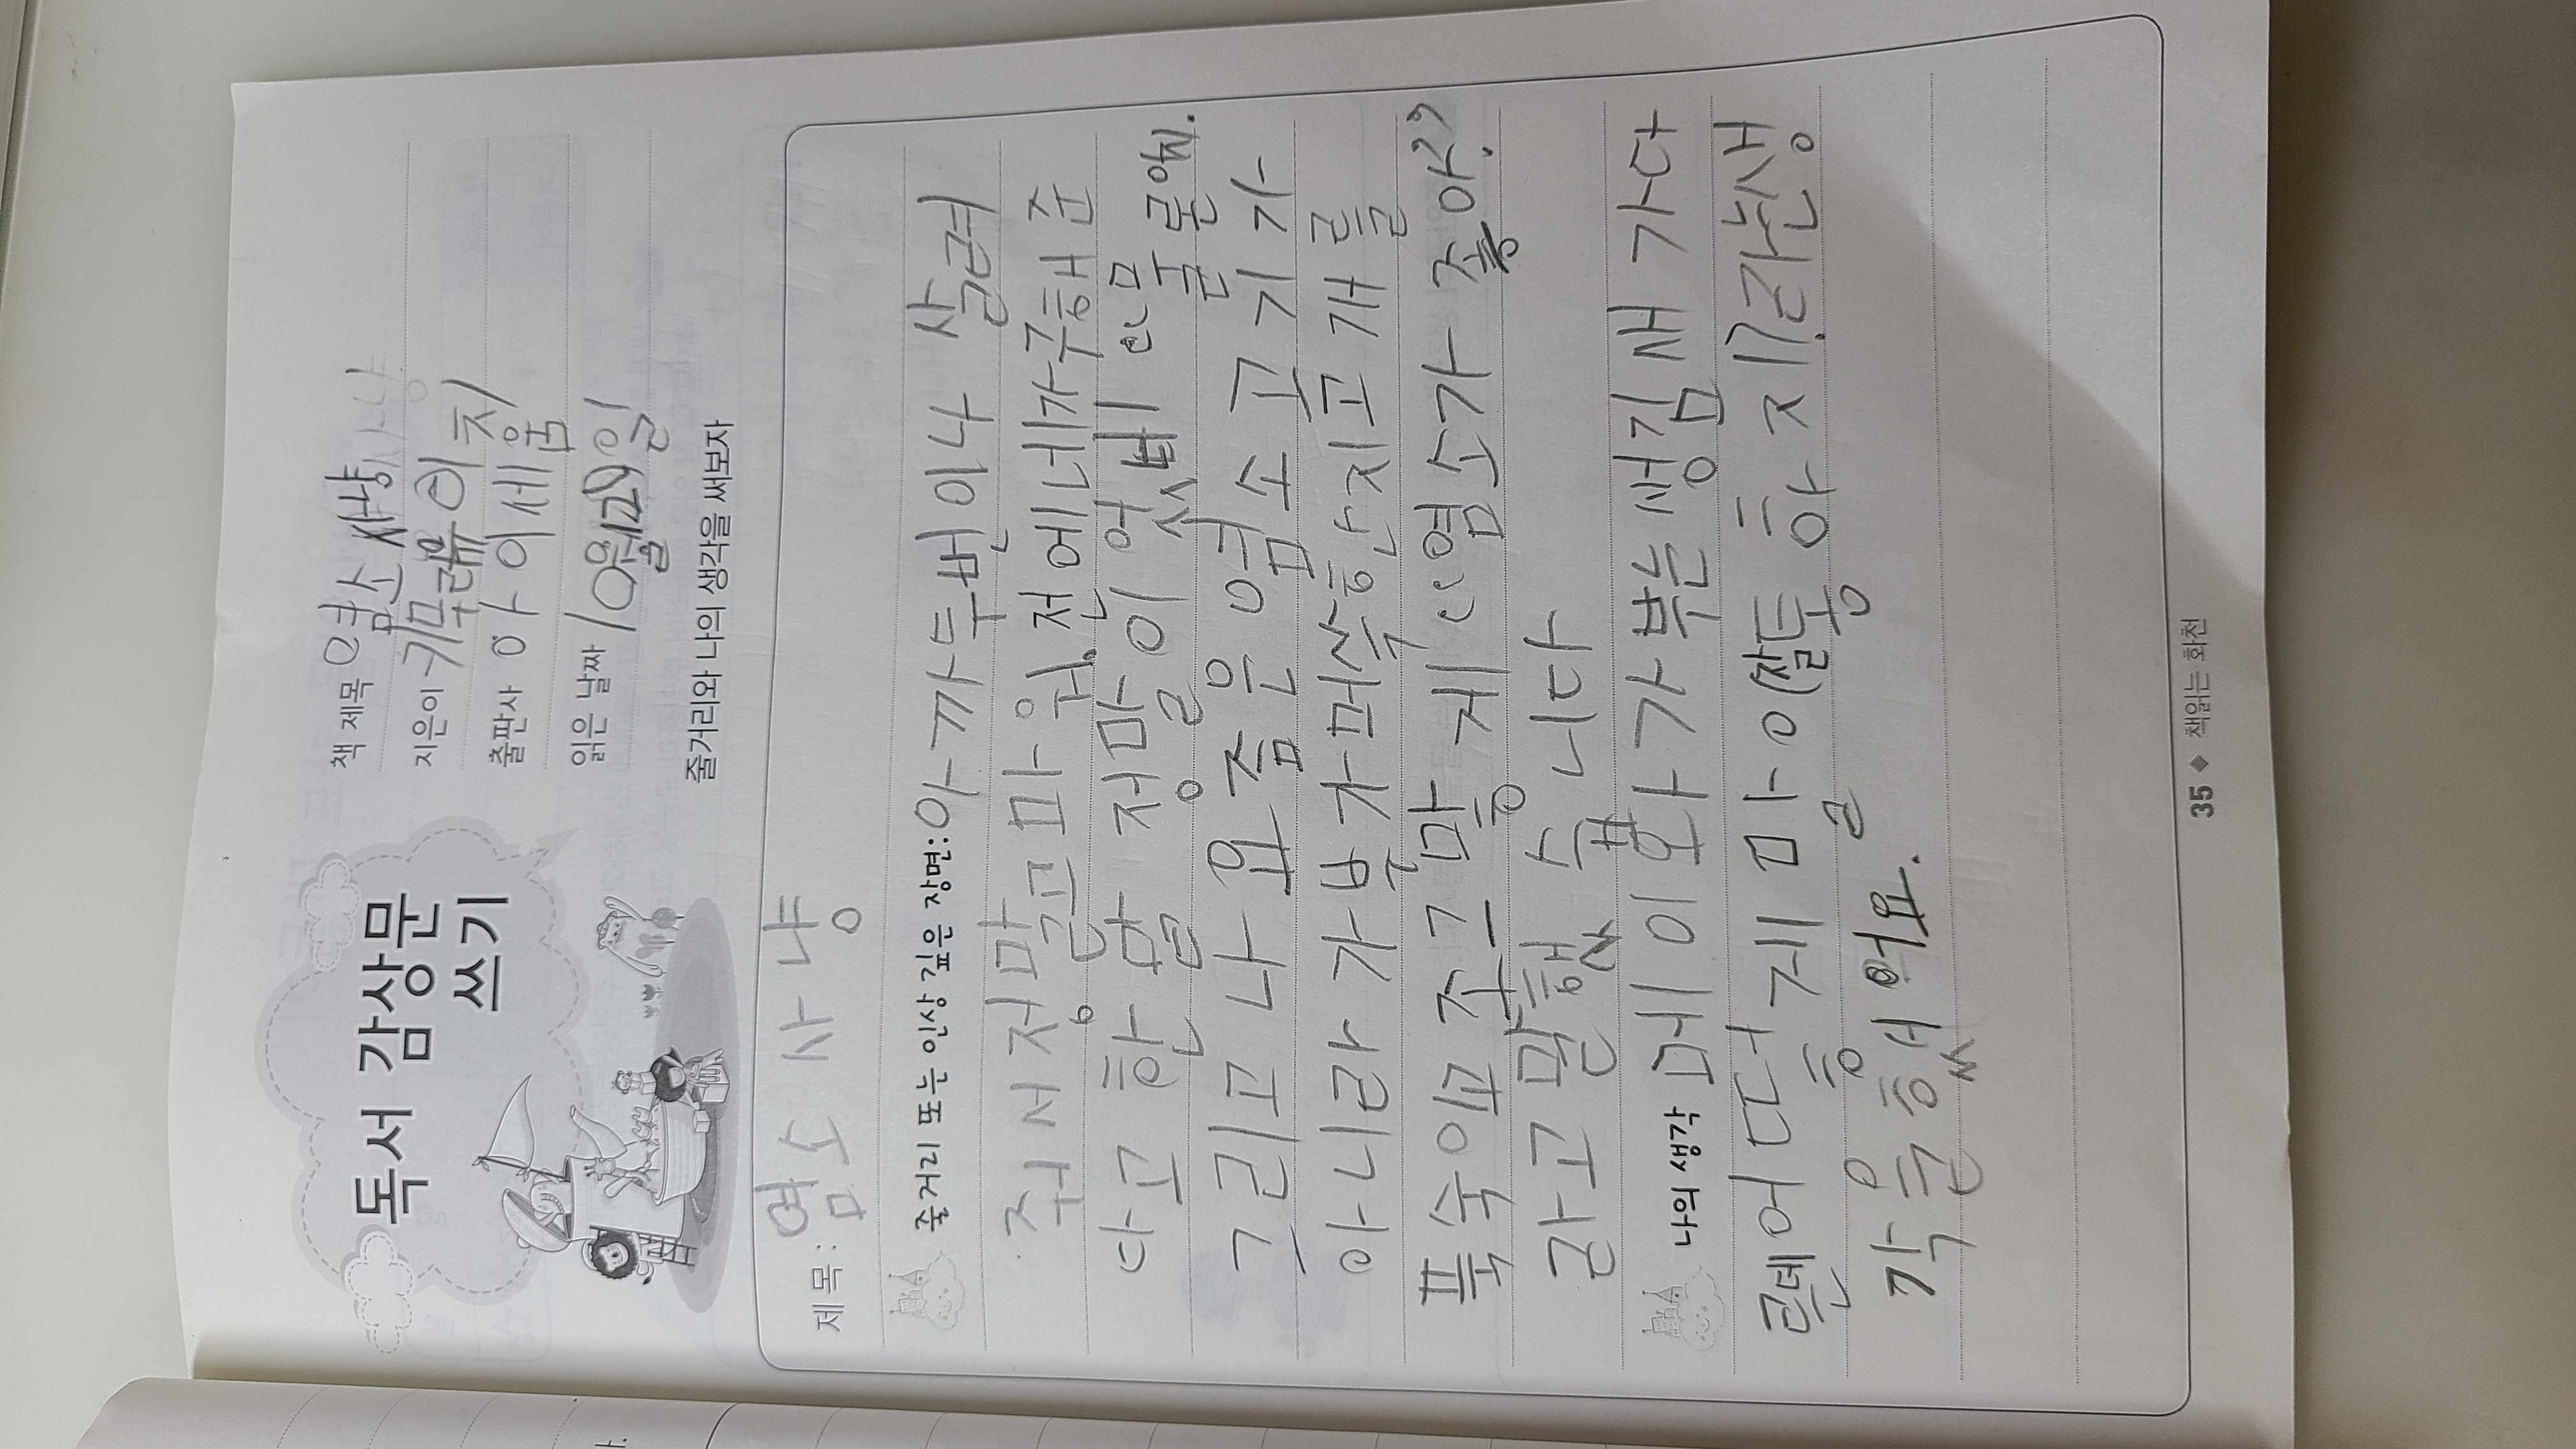 독서 감상문
쓰기
책 제목 염소 사냥
지은이 키무라유이치
출판사 아이세움
읽은 날짜 10월29일
줄거리와 나의 생각을 써보자
제목: 염소 사냥
줄거리 또는 인상 깊은 장면: 아까두번이나 살려
줘서 정말고마워. 전에네가구해준
다고 한 말 정말이었네 "물론이지.
그리고 나 요즘은 염소고기가
아니라 가부가머쓱한지고개를
푹숙이고,조그맣게 "염소가 좋아."
라고 말했습니다
나의 생각 메이와 가부는 생김새가다
른데어떻게 말이잘통하지?라는생
각을했어요.
35 ◆ 책읽는 화천